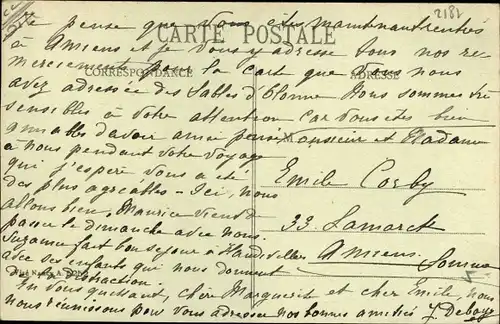 2181
CARTE POSTALE
CORRESPONDANCE
ADRESSE
Je pense que vous êtes maintenant rentrés
à Amiens et je vous y adresse tous nos re
merciements pour la cart que vous nous
avez adressée des Sables d'Olonne Nous sommes très
sensibles à votre attention car vous êtes bien
aimables davoir ainsi pensé
à nous pendant votre voyage
qui j'espère vous a été
des plus agréables - Ici, nous
allons bien, Maurice vient
passer le dimanche avec nous.
Suzanne fait bon séjour à
avec ses enfants qui nous donnent
distraction.
En vous quittant, chère Marguerit et cher Emile, nous
nous réunissons pour vous adresser nos bonnes amitiés J. Debaye
Monsieur et Madame
Emile Corby
33. Lamarck
Amiens.
Somme